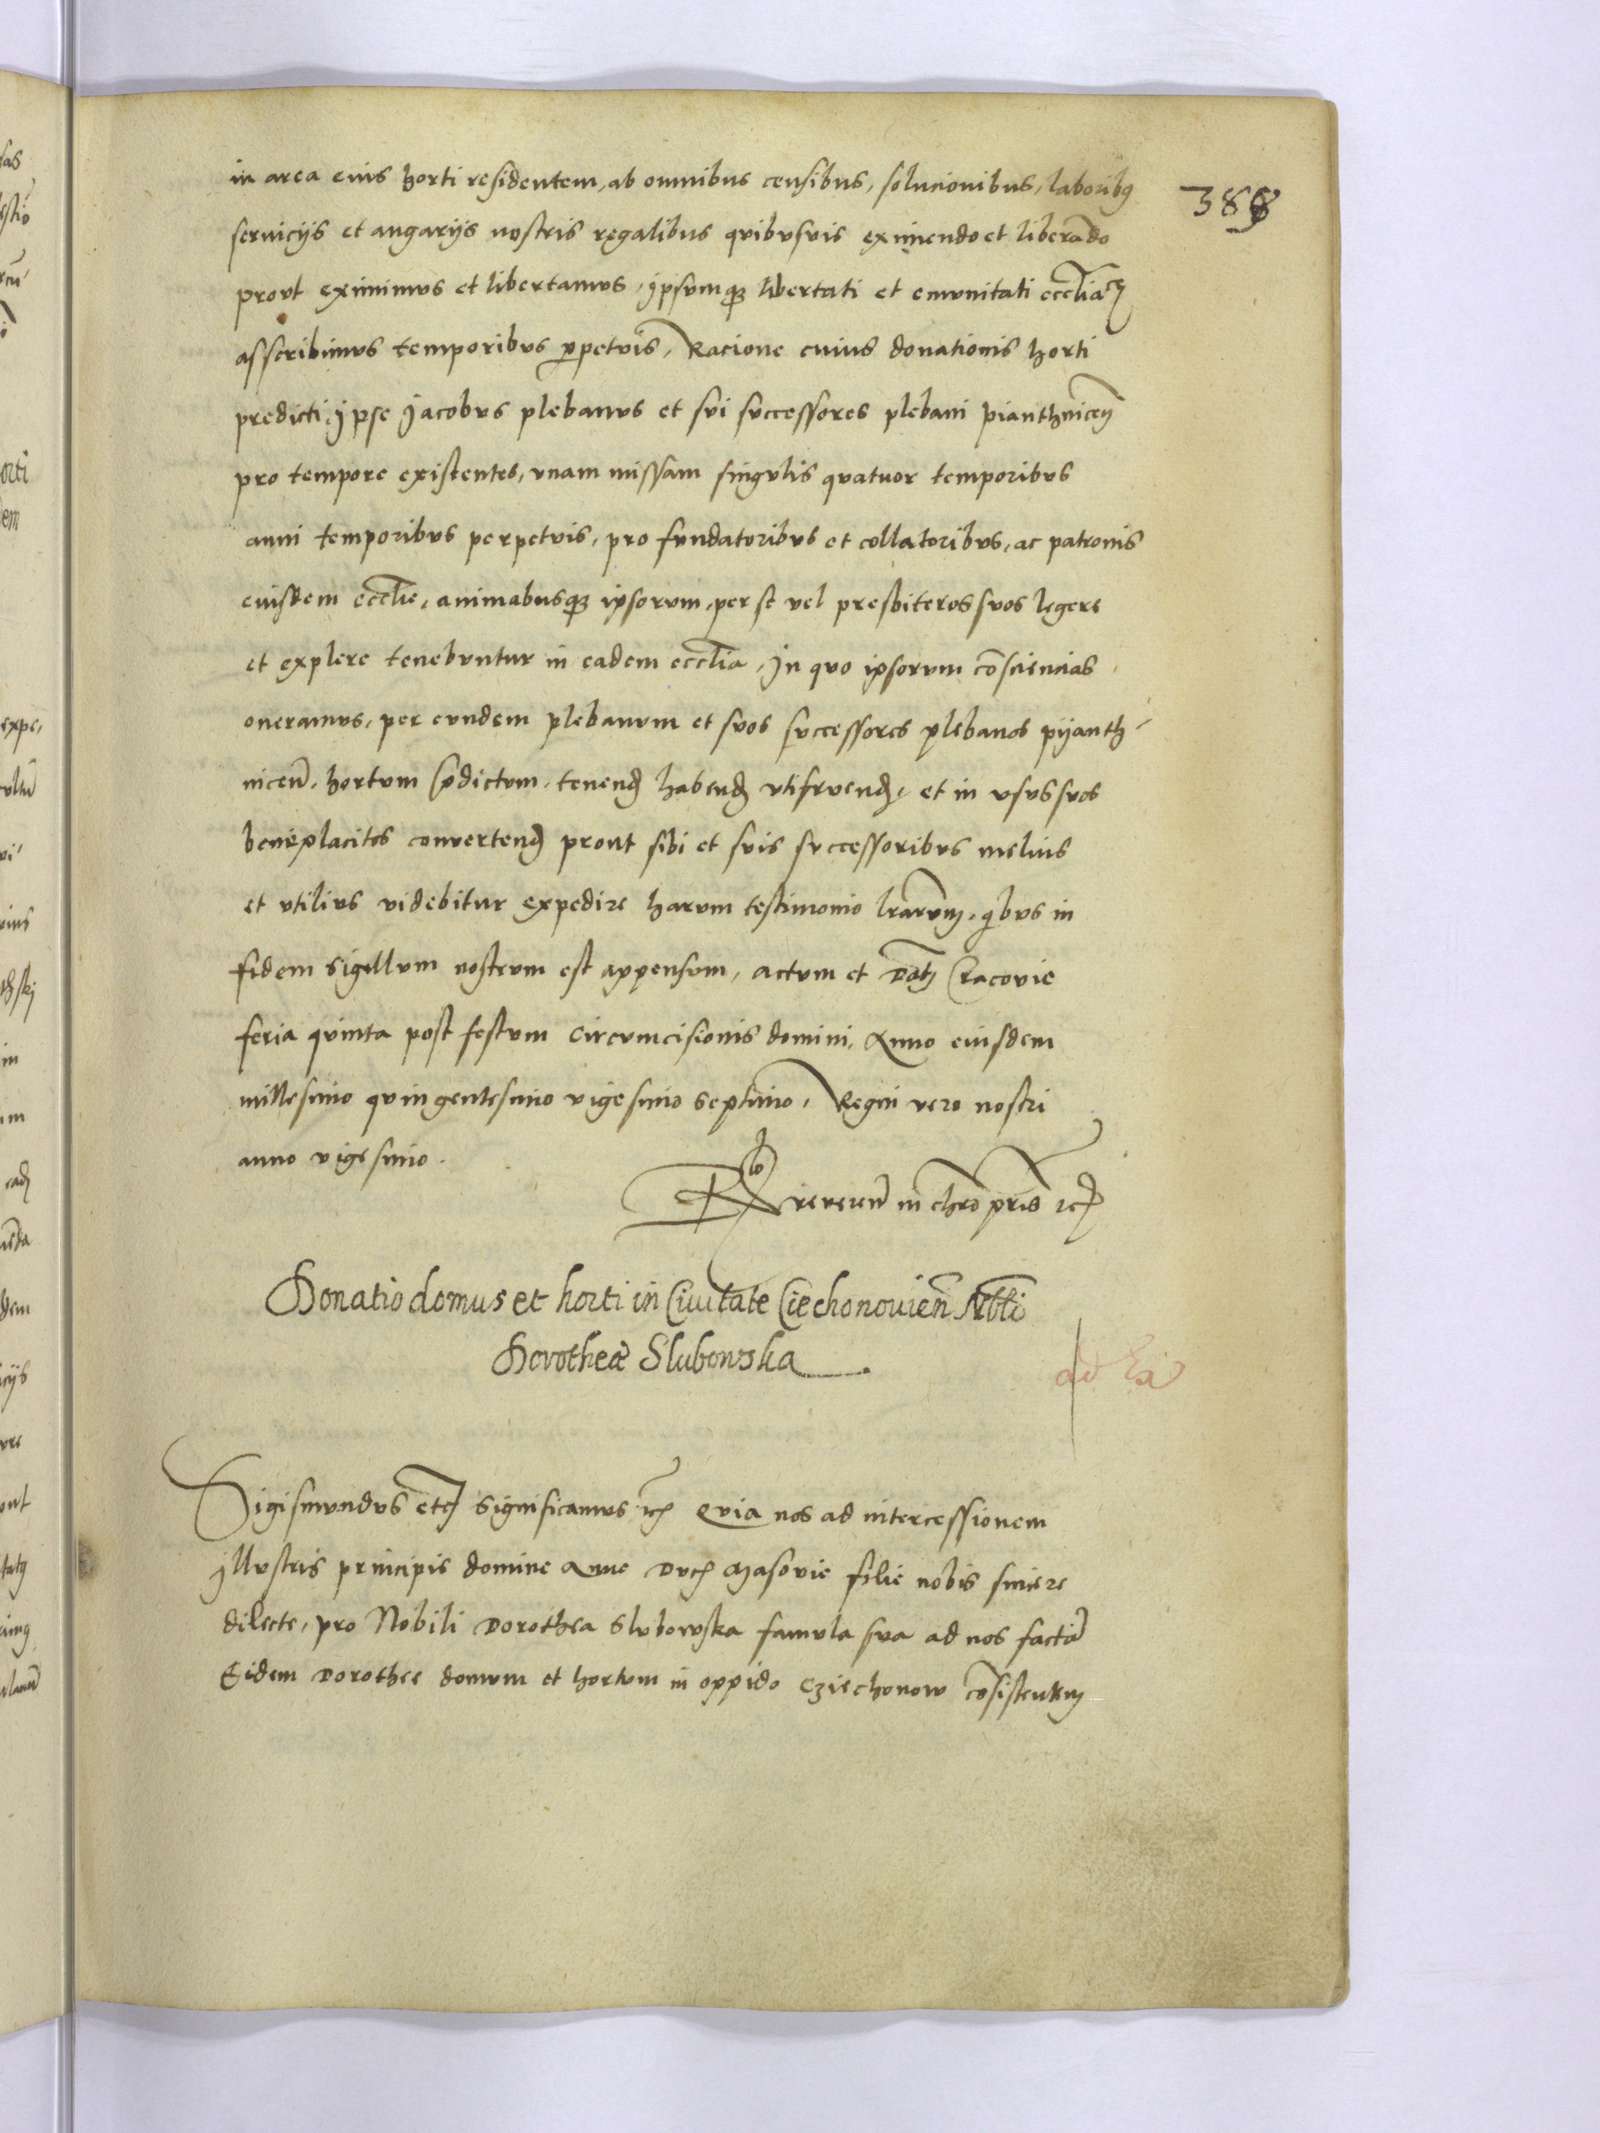 388
in area eius horti residentem, ab omnibus censibus, solucionibus, laboribꝰ
seruicijs et angarijs nostris regalibus quibusuis eximendo et liberãdo
prout eximimus et libertamus, ipsumqꝫ libertati et emunitati eccl̃iaꝝ
asscribimus temporibus ꝑpetuis, Racione cuius donationis horti
predicti, ipse Jacobus plebanus et sui successores plebani pianthniceñ
pro tempore existentes, vnam missam singulis quatuor temporibus
anni temporibus perpetuis, pro fundatoribus et collatoribus, ac patronis
eiusdem eccl̃ie, animabusqꝫ ipsorum, per se vel presbiteros suos legere
et explere tenebuntur in eadem eccl̃ia, In quo ipsorum cõsciencias
oneramus, per eundem plebanum et suos successores plebanos pyanth-
niceñ. hortum p̃dictum. tenenđ habenđ vtifruenđ, et in vsus suos
beneplacitos conuertenđ prout sibi et suis successoribus melius
et vtilius videbitur expedire harum testimonio lr̃arum, qibus in
fidem sigillum nostrum est appensum, actum et Datꝫ Cracovie
feria quinta post festum circumcisionis domini, Anno eiusdem
millesimo quingentesimo vigesimo septimo, Regni vero nostri
anno vigesimo.
Rlo reuereñ in chr̃o pr̃is ꝛcꝫ
Donatio domus et horti in Ciuitate Ciechonouieñ Nobli
Dorotheæ Slubowska
ad
Sigismundus etcꝫ significamus ꝛcꝫ Quia nos ad intercessionem
illustris principis domine Anne Ducꝫ Masouie filie nobis sincere
dilecte, pro Nobili Dorothea Slubowska famula sua ad nos factã
Eidem Dorothee domum et hortum in oppido Cziechonow cõsistentem